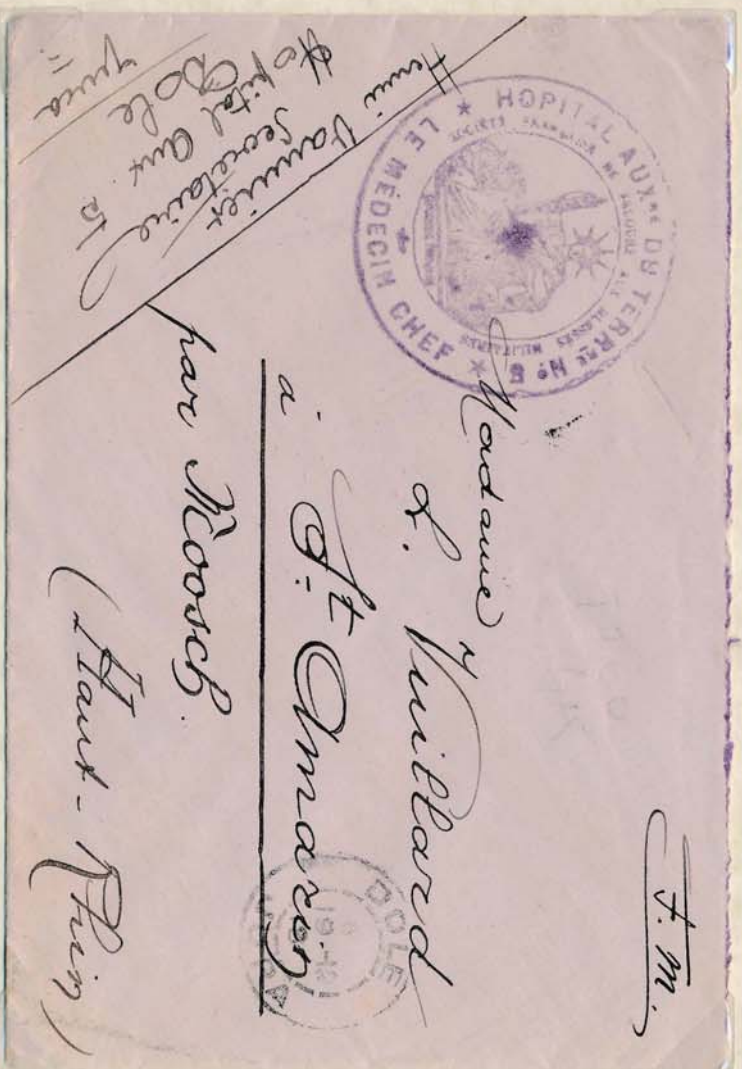 F. M.
HOPITAL AUXRE DU TERRRE No 5
LE MÉDECIN CHEF
SOCIÉTÉ FRANÇAISE DE SECOURS AUX BLESSÉS MILITAIRES
Madame
L. Vuillard
à St Amarin
par Moosch.
(Haut-Rhin)
DOLE
JURA
Henri
Secrétaire
Hopital Aux. 
Dole